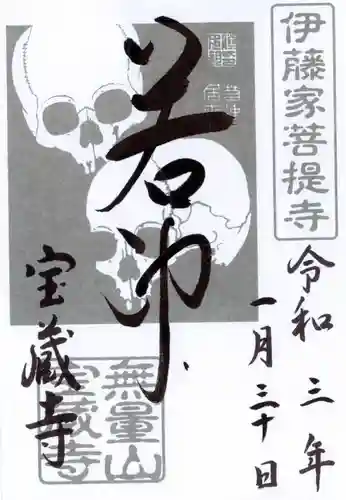 伊藤家菩提寺
令和三年
一月三十日
若冲
宝蔵寺
無量山
宝蔵寺